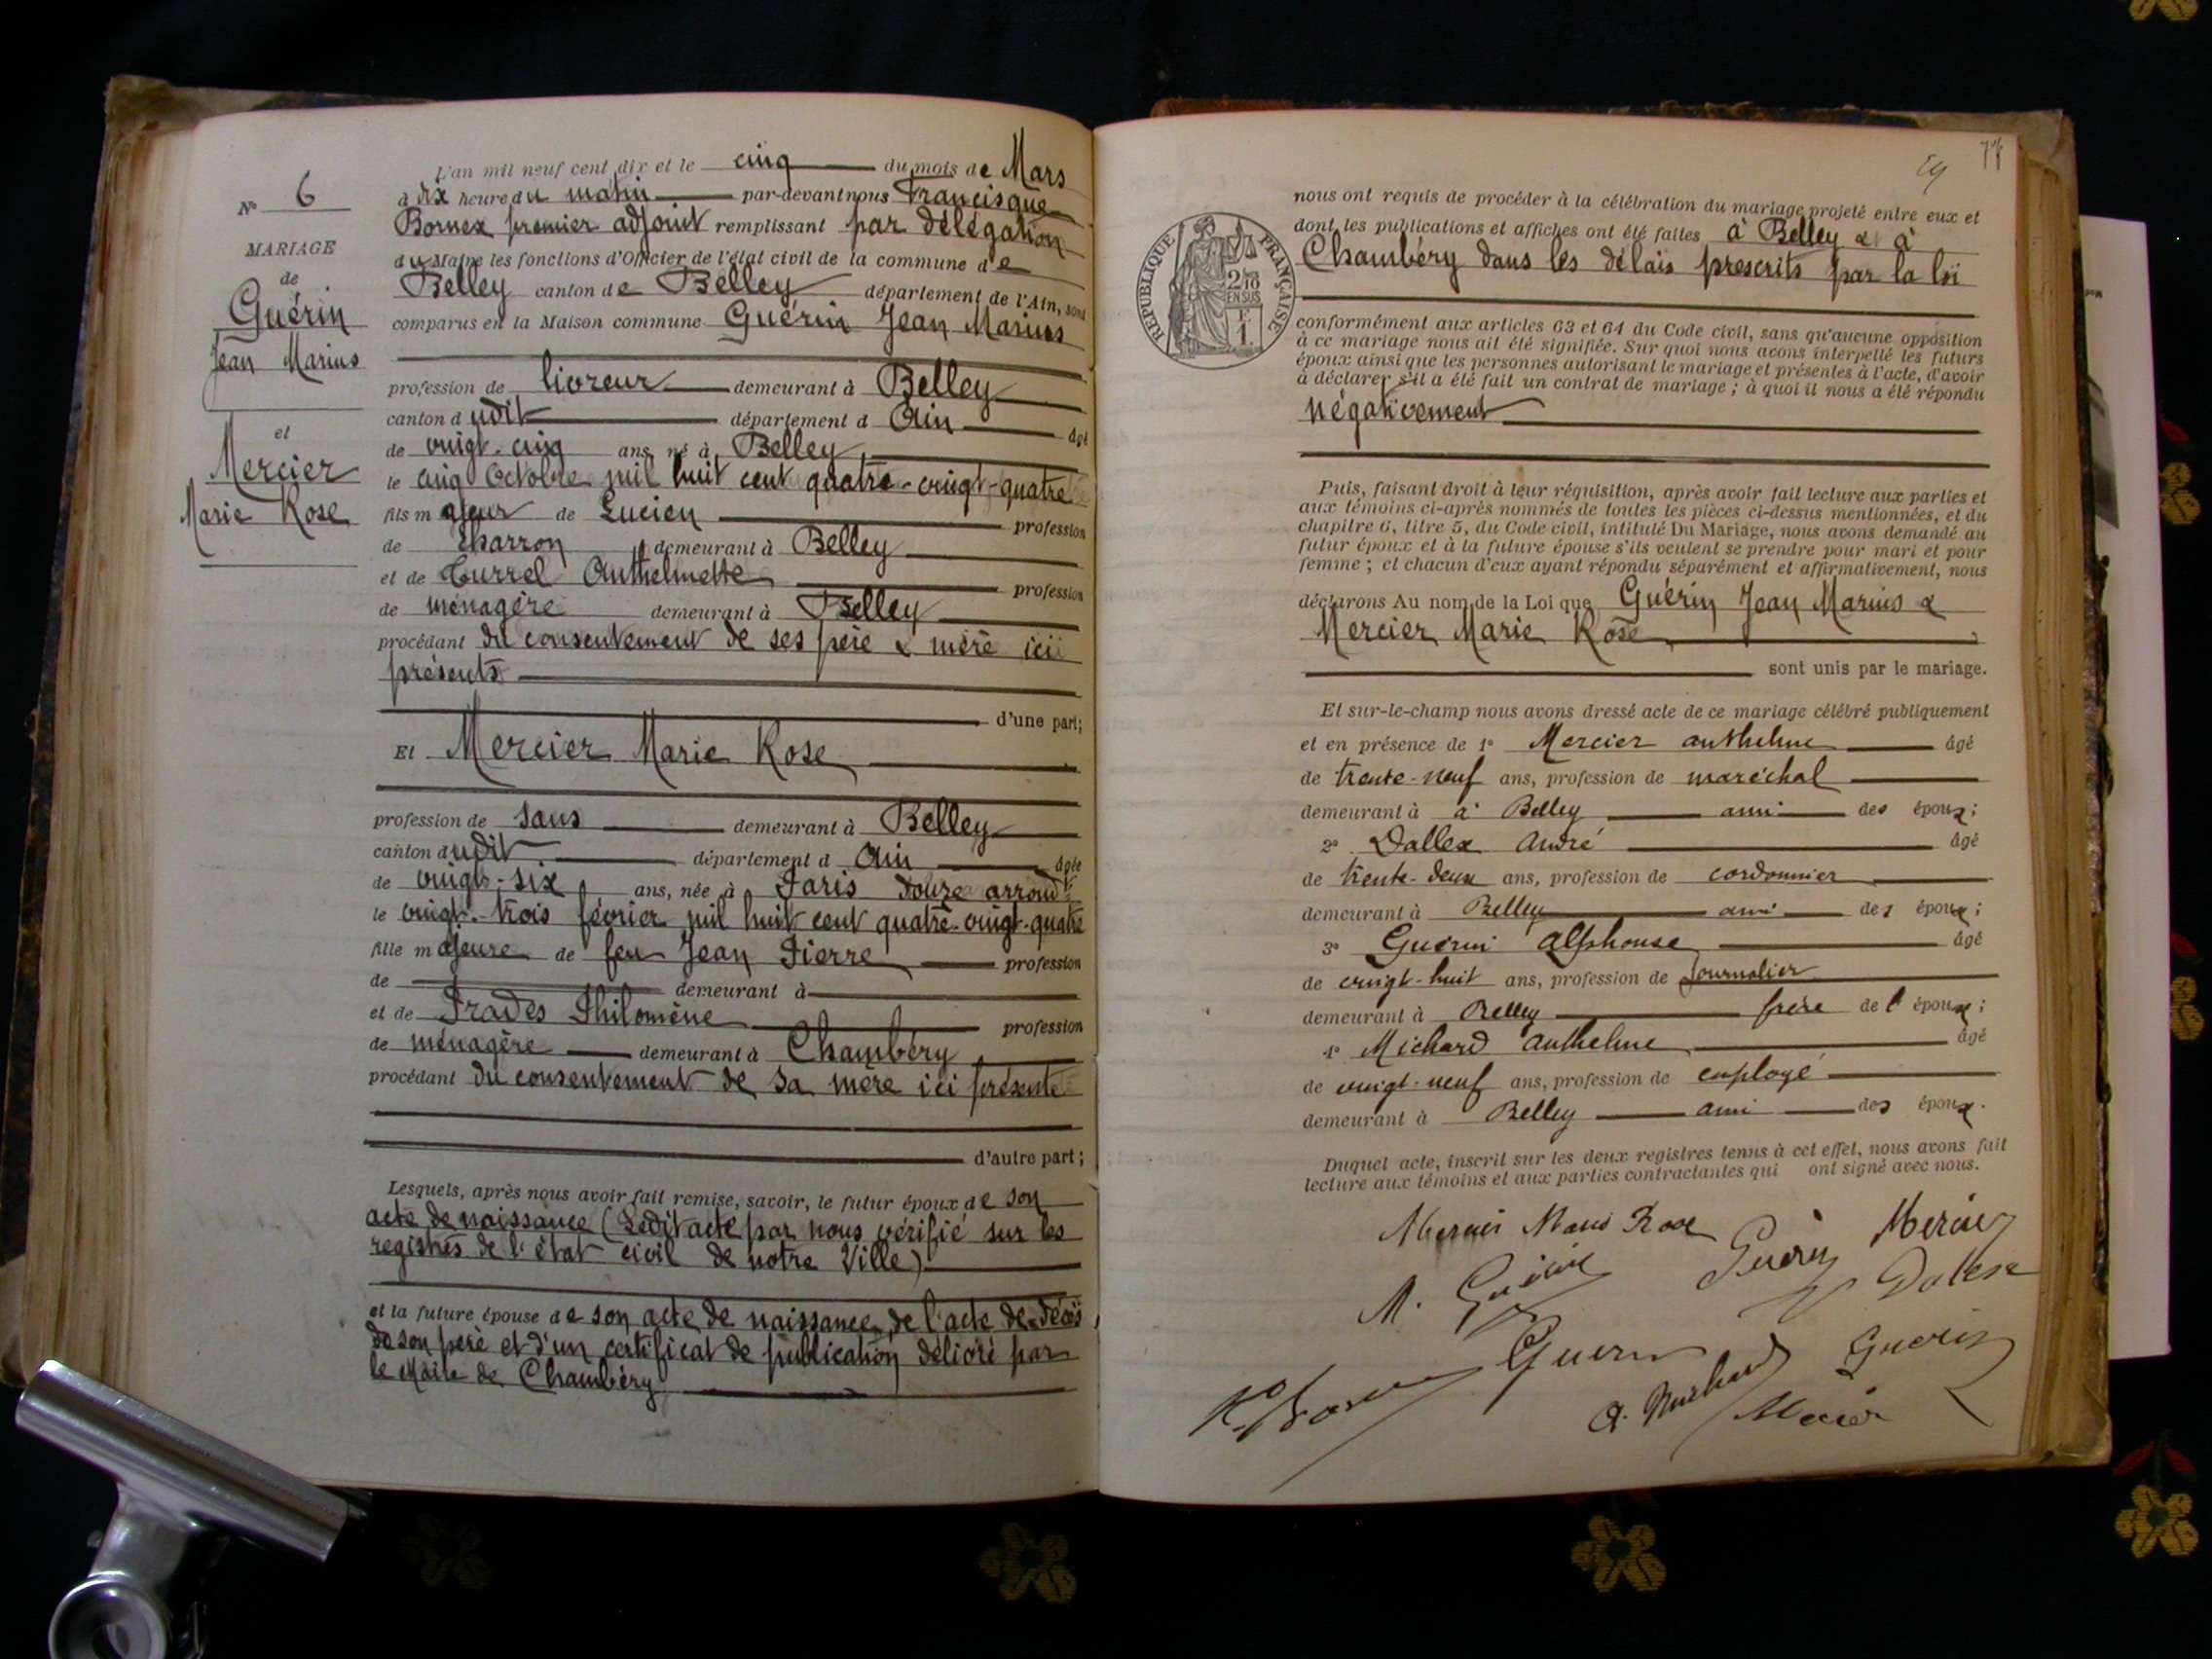 L'an mil neuf cent dix et le cinq du mois de Mars
à dix heure du matin par-devant nous Francisque
Bornex premier adjoint remplissant par délégation
du Maire les fonctions d'Officier de l'état civil de la commune de
Belley canton de Belley département de l'Ain, sont
comparus en la Maison commune Guérin Jean Marius
profession de livreur demeurant à Belley
canton dudit département d Ain âgé
de vingt-cinq ans, né à Belley
le cinq Octobre mil huit cent quatre-vingt-quatre
fils majeur de Lucien profession
de charron demeurant à Belley
et de Currel Anthelmette profession
de ménagère demeurant à Belley
procédant du consentement de ses père & mère ici
présents
d'une part;
Et Mercier Marie Rose
profession de sans demeurant à Belley
canton dudit département d Ain âgée
de vingt-six ans, née à Paris douze arrondt
le vingt-trois février mil huit cent quatre-vingt-quatre
fille majeure de feu Jean Pierre profession
de demeurant à
et de Prades Philomène profession
de ménagère demeurant à Chambéry
procédant du consentement de sa mère ici présente
d'autre part;
Lesquels, après nous avoir fait remise, savoir, le futur époux de son
acte de naissance (Ledit acte par nous vérifié sur les
registres de l'état civil de notre Ville)
et la future épouse de son acte de naissance, de l'acte de décès
de son père et d'un certificat de publication délivré par
le Maire de Chambéry
N° 6
MARIAGE
de
Guérin
Jean Marius
et
Mercier
Marie Rose
RÉPUBLIQUE FRANÇAISE
2/10
EN SUS
F.
1.
nous ont requis de procéder à la célébration du mariage projeté entre eux et
dont les publications et affiches ont été faites à Belley & à
Chambéry dans les délais prescrits par la loi
conformément aux articles 63 et 64 du Code civil, sans qu'aucune opposition
à ce mariage nous ait été signifiée. Sur quoi nous avons interpellé les futurs
époux ainsi que les personnes autorisant le mariage et présentes à l'acte, d'avoir
à déclarer s'il a été fait un contrat de mariage; à quoi il nous a été répondu
négativement
Puis, faisant droit à leur réquisition, après avoir fait lecture aux parties et
aux témoins ci-après nommés de toutes les pièces ci-dessus mentionnées, et du
chapitre 6, titre 5, du Code civil, intitulé Du Mariage, nous avons demandé au
futur époux et à la future épouse s'ils veulent se prendre pour mari et pour
femme; et chacun d'eux ayant répondu séparément et affirmativement, nous
déclarons Au nom de la Loi que Guérin Jean Marius &
Mercier Marie Rose
sont unis par le mariage.
Et sur-le-champ nous avons dressé acte de ce mariage célébré publiquement
et en présence de 1° Mercier Anthelme âgé
de trente-neuf ans, profession de maréchal
demeurant à à Belley ami des époux;
2° Dallex André âgé
de trente-deux ans, profession de cordonnier
demeurant à Belley ami des époux;
3° Guérin Alphonse âgé
de vingt-huit ans, profession de Journalier
demeurant à Belley frère de l'époux;
4° Michard Anthelme âgé
de vingt-neuf ans, profession de employé
demeurant à Belley ami des époux.
Duquel acte, inscrit sur les deux registres tenus à cet effet, nous avons fait
lecture aux témoins et aux parties contractantes qui ont signé avec nous.
Mercier Marie Rose Guérin Mercier
M. Guérin Dallex
Guerin Guerin
A. Michard Mercier